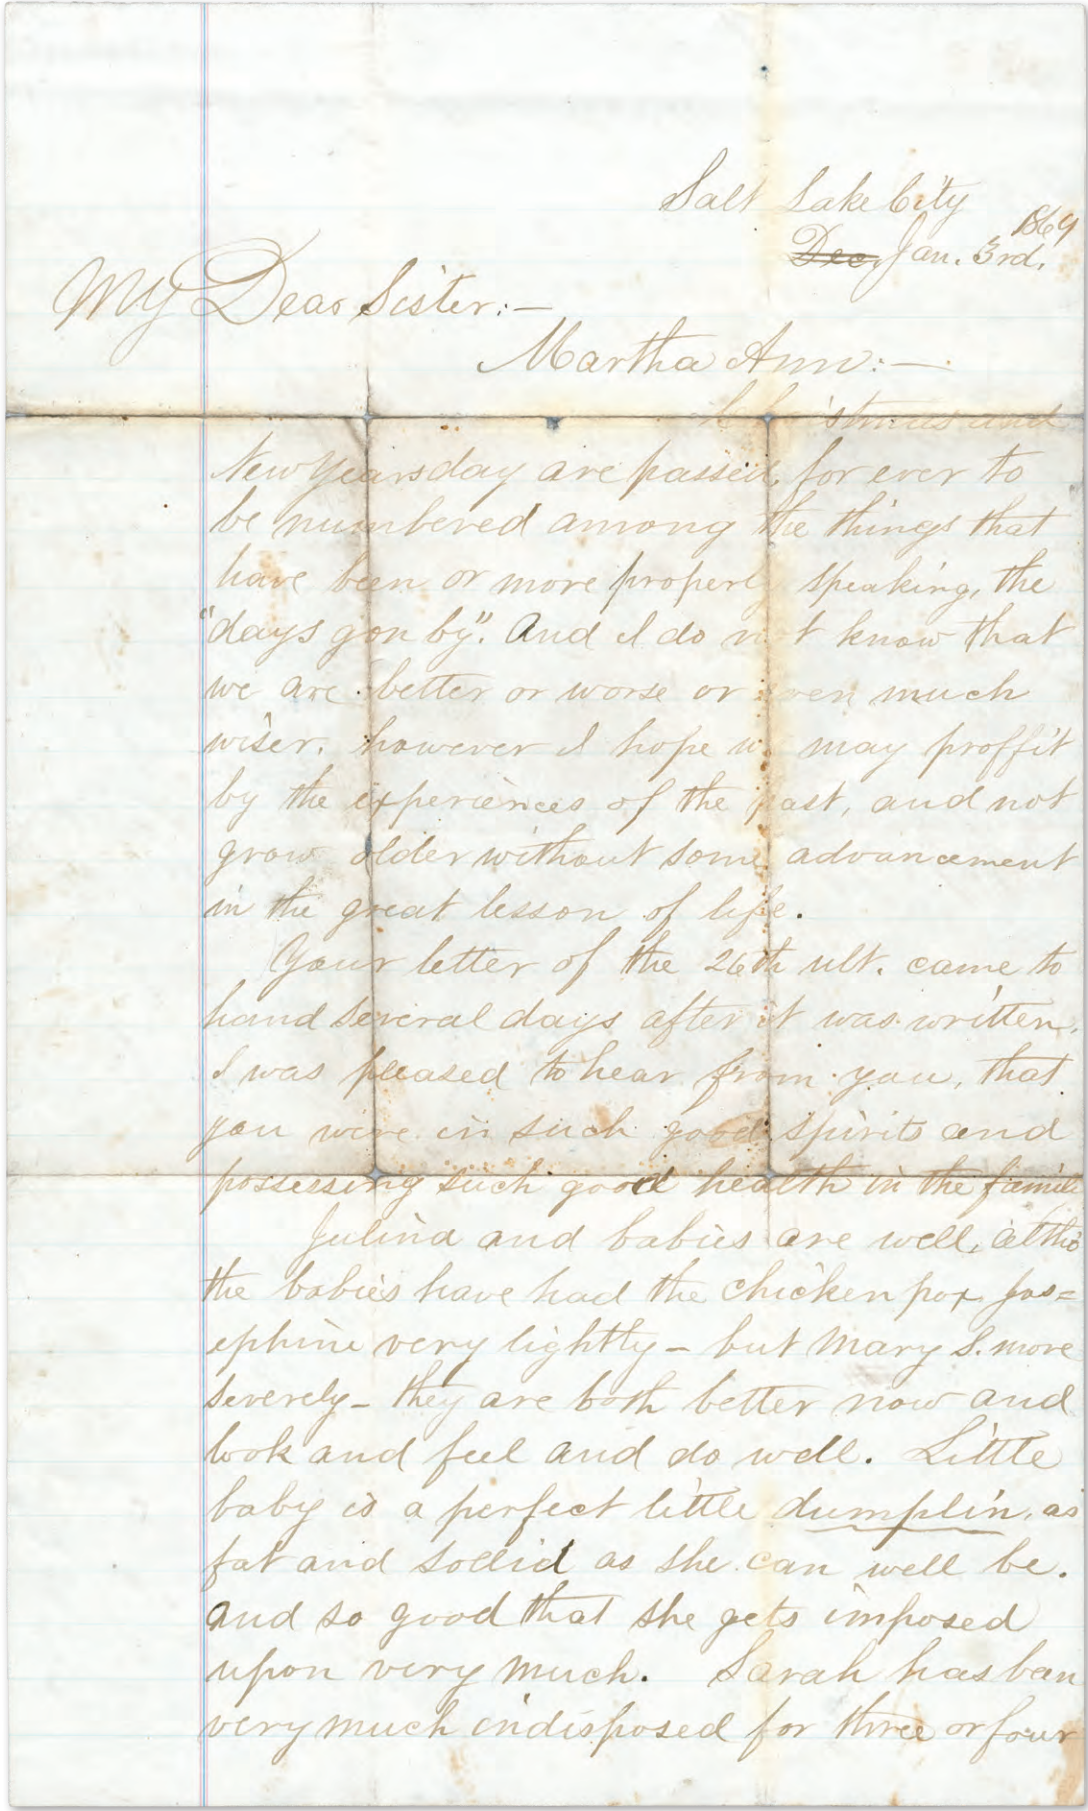 Salt Lake City
1869
Dec. Jan. 3rd.
My Dear Sister:—
Martha Ann:—
Christmas and
New Yearsday are passed, for ever to
be numbered among the things that
have been or more properly speaking, the
"days gon by". And I do not know that
we are better or worse or even much
wiser. however I hope we may proffit
by the experiences of the past, and not
grow older without some advancement
in the great lesson of life.
Your letter of the 26th ult. came to
hand several days after it was written.
I was pleased to hear from you, that
you were in such good spirits and
possessing such good health in the family
Julina and babies are well, altho
the babies have had the chicken pox Jos=
ephine very lightly – but Mary S. more
severely – they are both better now and
look and feel and do well. Little
baby is a perfect little dumplin, as
fat and sollid as she can well be.
and so good that she gets imposed
upon very much. Sarah has been
very much indisposed for three or four